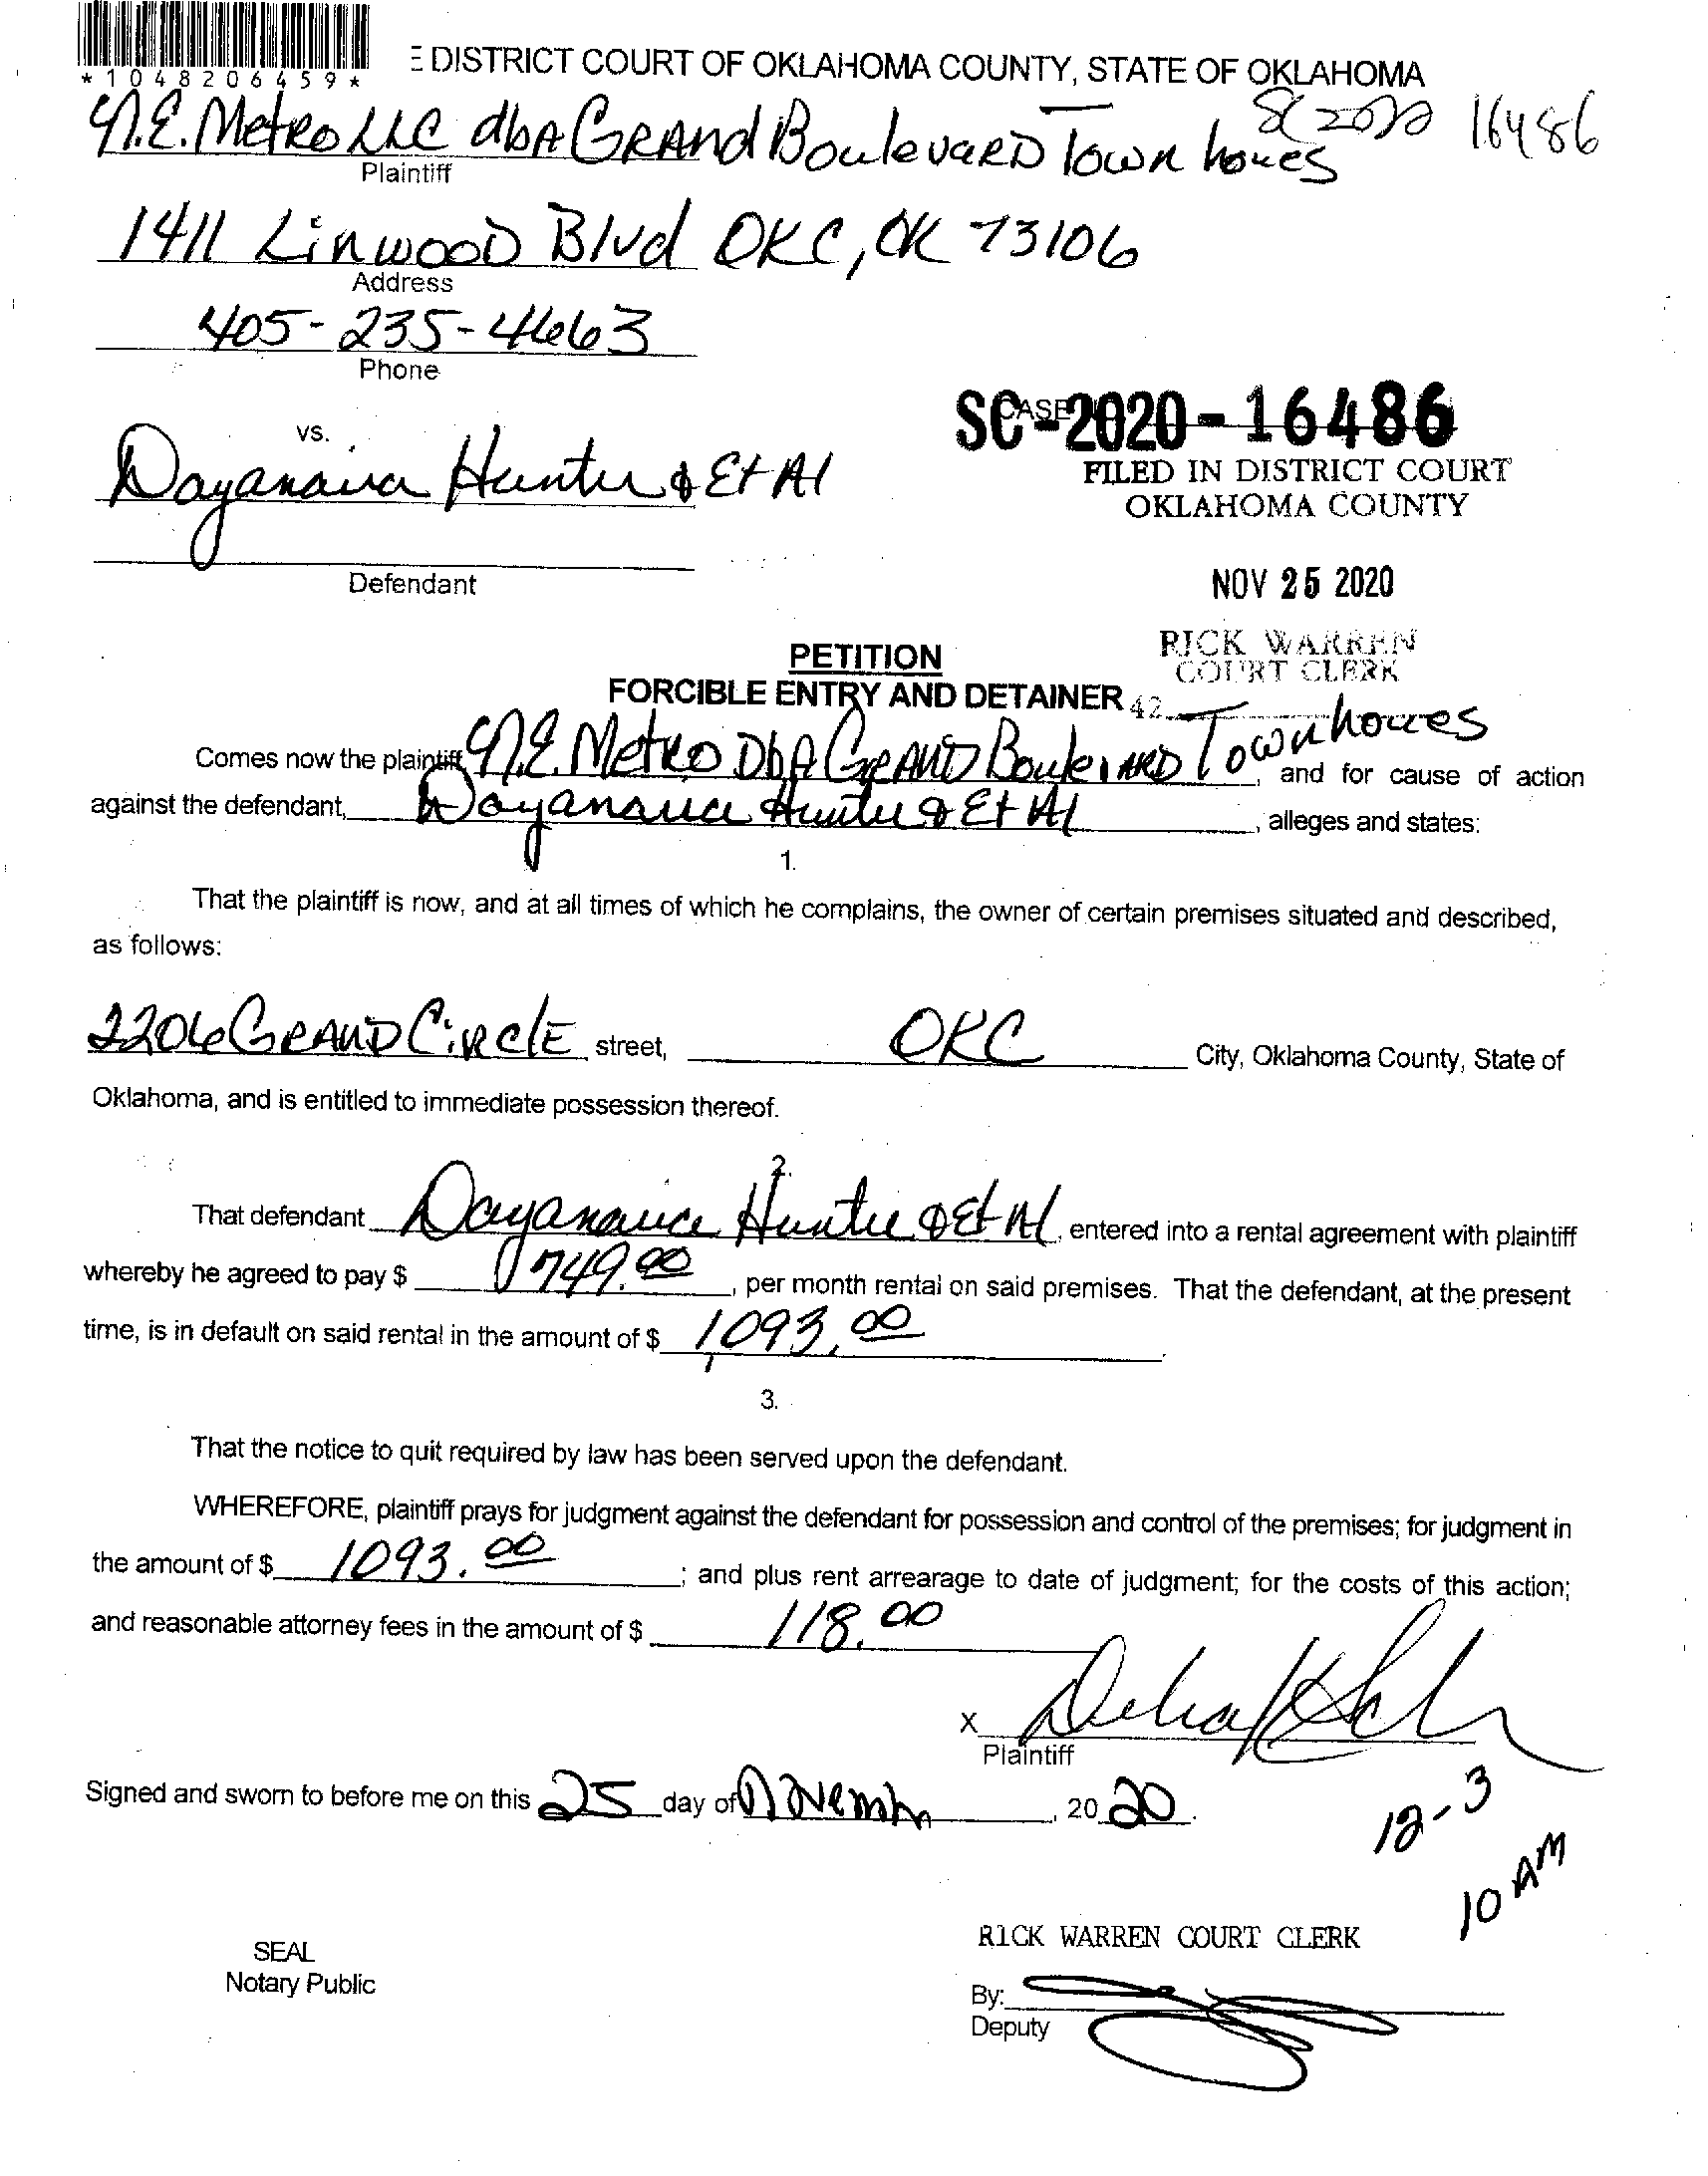 *1048206459*
E DISTRICT COURT OF OKLAHOMA COUNTY, STATE OF OKLAHOMA
SC 2020 16486
N.E. Metro LLC dbA GRANd BoulevaRD Town homes
Plaintiff
1411 LinwooD Blvd OKC, OK 73106
Address
405-235-4663
Phone
SC-2020-16486
CASE
vs.
Hunter & Et Al
FILED IN DISTRICT COURT
OKLAHOMA COUNTY
Defendant
NOV 25 2020
RICK WARREN
COURT CLERK
PETITION
FORCIBLE ENTRY AND DETAINER
42
Comes now the plaintiff, N.E. Metro DbA GRAND BoulevARD Townhomes, and for cause of action
against the defendant, Hunter & Et Al, alleges and states:
1.
That the plaintiff is now, and at all times of which he complains, the owner of certain premises situated and described,
as follows:
2206 GRAND CiRclE street, OKC City, Oklahoma County, State of
Oklahoma, and is entitled to immediate possession thereof.
2.
That defendant Hunter & Et Al, entered into a rental agreement with plaintiff
whereby he agreed to pay $ 749.00, per month rental on said premises. That the defendant, at the present
time, is in default on said rental in the amount of $ 1093.00.
3.
That the notice to quit required by law has been served upon the defendant.
WHEREFORE, plaintiff prays for judgment against the defendant for possession and control of the premises; for judgment in
the amount of $ 1093.00; and plus rent arrearage to date of judgment; for the costs of this action;
and reasonable attorney fees in the amount of $ 118.00
X
Plaintiff
Signed and sworn to before me on this 25 day of November, 2020.
12-3
10 AM
RICK WARREN COURT CLERK
SEAL
Notary Public
By:
Deputy